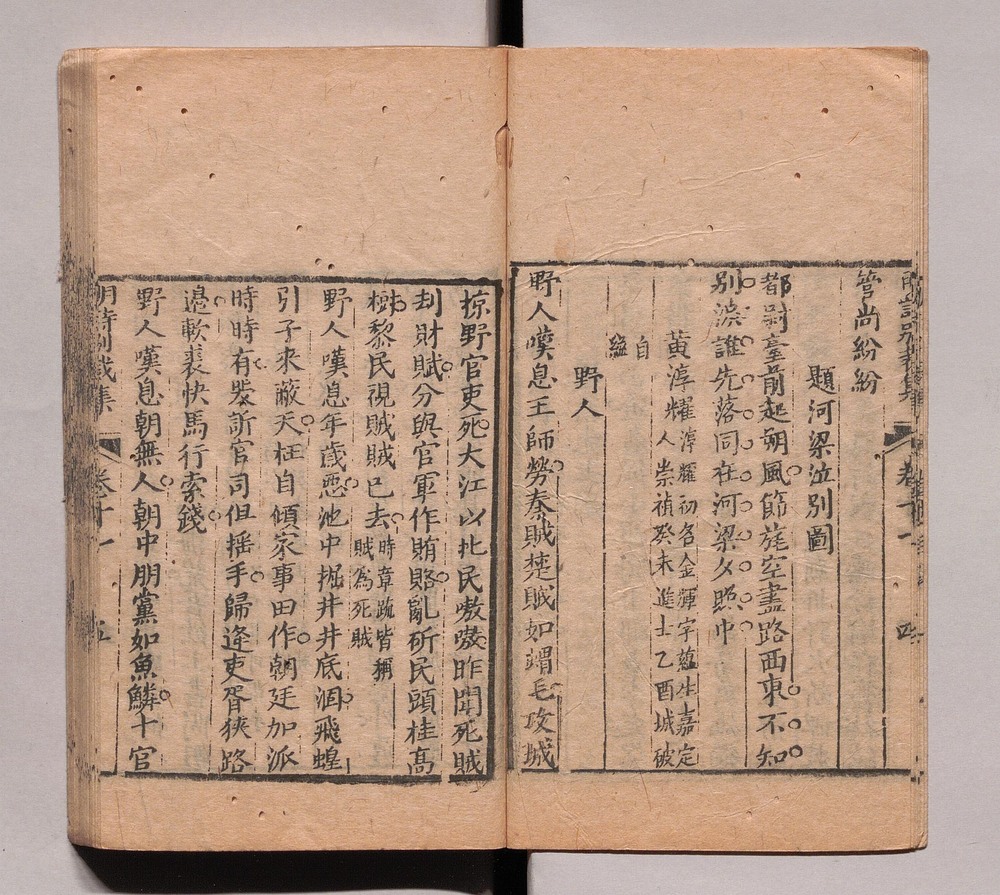 管尚紛紛
題河梁泣別圖
都尉臺前起朔風節旄空盡路西東不知
別淚誰先落同在河梁夕照中
黃淳耀淳耀初名金耀字蘊生嘉定
人崇禎癸未進士乙酉城破
自
縊
野人
野人嘆息王師勞秦賊楚賊如蝟毛攻城
掠野官吏死大江以北民嗷嗷昨聞死賊
刦財賦分與官軍作賄賂亂斫民頭挂高
樹黎民視賊賊已去時章疏皆稱
賊為死賊
野人嘆息年歲惡池中掘井井底涸飛蝗
引子來蔽天枉自傾家事田作朝廷加派
時時有哭訴官司但搖手歸逢吏胥狹路
邊軟裘快馬行索錢
野人嘆息朝無人朝中朋黨如魚鱗十官
明詩別裁集 卷十一 五
明詩別裁集 卷十一 四